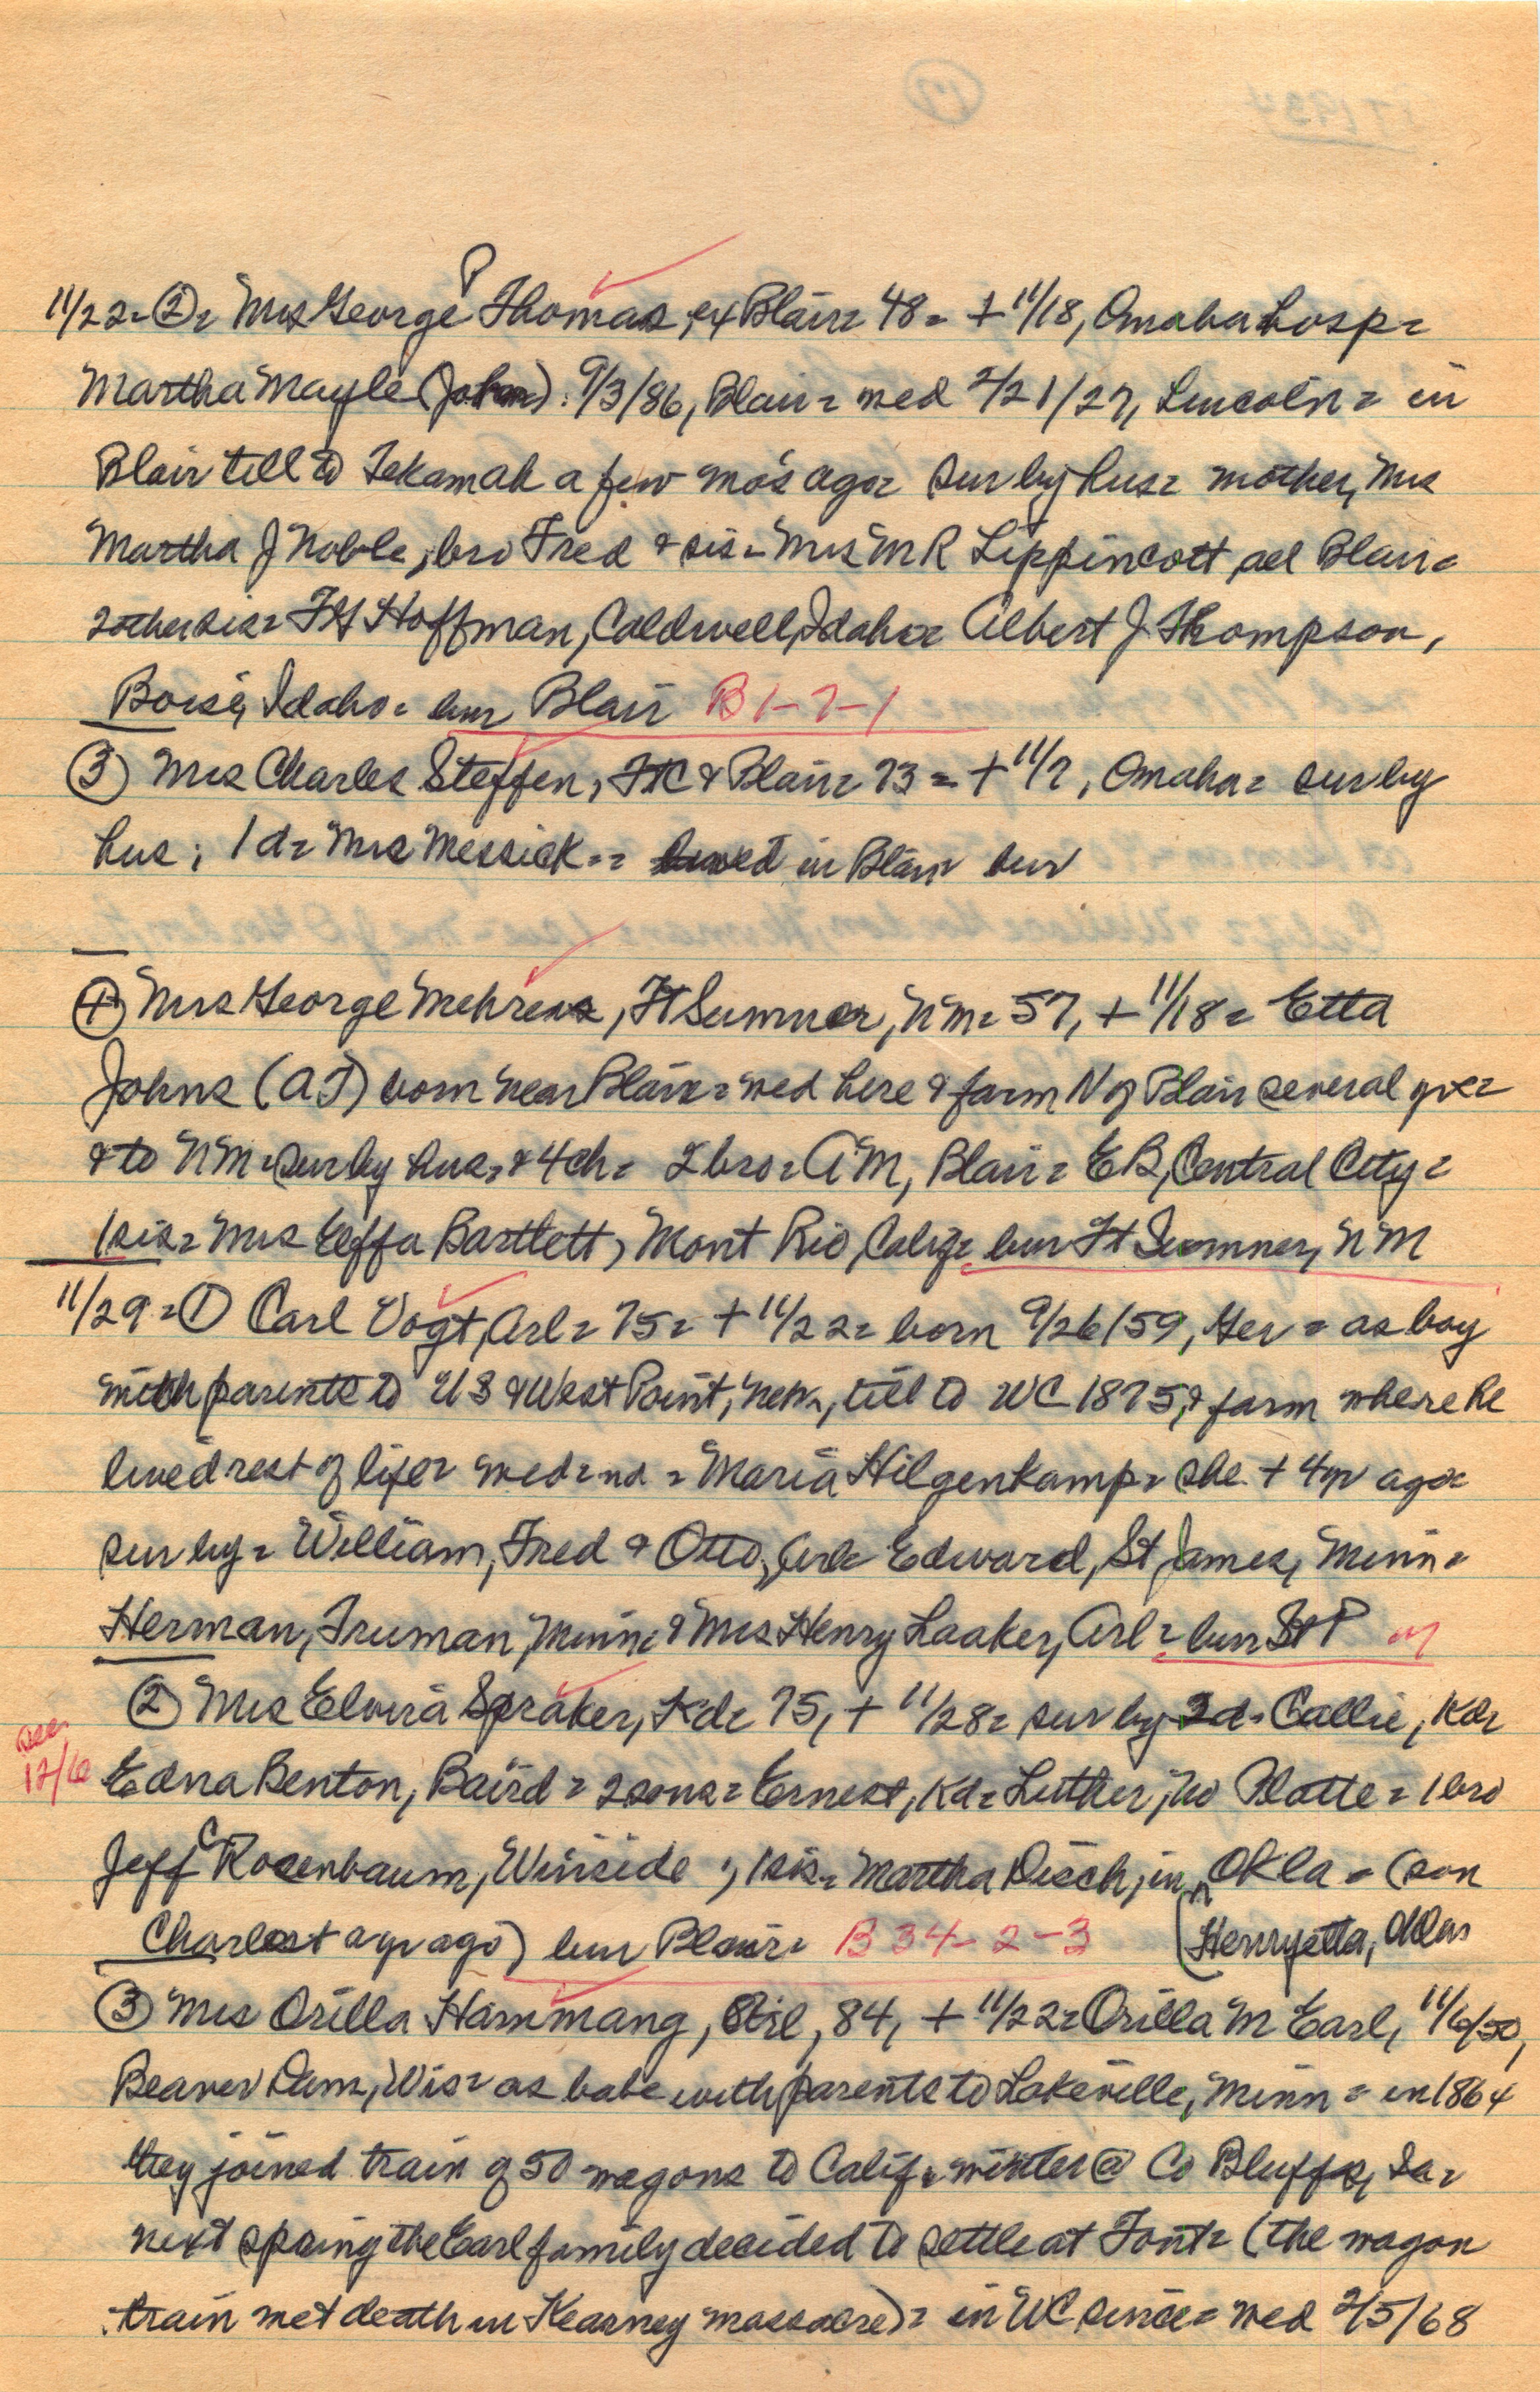 11/22 = ② = Mrs George P Thomas, ex Blair = 48 = + 11/18, Omaha hosp =
Martha Mayle (John) : 9/3/86, Blair = wed 2/21/27, Lincoln = in
Blair till to Tekamah a few mo's ago = sur by hus = mother, Mrs
Martha J Noble, bro Fred & sis = Mrs M R Lippincott, all Blair =
2 other sis = F H Hoffman, Caldwell, Idaho = Albert J Thompson,
Boise, Idaho = bur Blair B 1-7-1
③ Mrs Charles Steffen, & Blair = 73 = + 11/7, Omaha = sur by
hus ; 1 d = Mrs Messick = = lived in Blair bur
④ Mrs George Mehrens, Ft Sumner, NM = 57, + 11/18 = Etta
Johns (A J) born near Blair = wed here & farm N of Blair several yrs =
& to NM = sur by hus = & 4 ch = 2 bro = A M, Blair = E B, Central City =
1 sis = Mrs Effa Bartlett, Mont Rio, Calif = bur Ft Sumner, NM
11/29 = ① Carl Vogt, Arl = 75 = + 11/22 = born 9/26/59, Ger = as boy
with parents to US & West Point, Neb, till to WC 1875, & farm where he
lived rest of life = wed = nd = Maria Hilgenkamp = she + 4 yr ago =
sur by = William, Fred & Otto, Arl = Edward, St James, Minn =
Herman, Truman, Minn & Mrs Henry Laaker, Arl = bur St P
② Mrs Elvira Spraker, Kd = 75, + 11/28 = sur by 2 d = Callie, Kd =
see 12/6
Edna Benton, Baird = 2 sons = Ernest, Kd = Luther, No Platte = 1 bro
Jeff C Rosenbaum, Winside ; 1 sis = Martha Disch, in Okla = (son
Charles + a yr ago) bur Blair = B 34-2-3 (Henryetta, Okla
③ Mrs Orilla Hammang, 84, + 11/22 = Orilla M Earl, 11/6/50,
Beaver Dam, Wis = as babe with parents to Lakeville, Minn = in 1864
they joined train of 50 wagons to Calif = winter @ Co Bluffs, Ia =
next spring the Earl family decided to settle at Font = (the wagon
train met death in Kearney massacre) = in WC since = wed 2/5/68